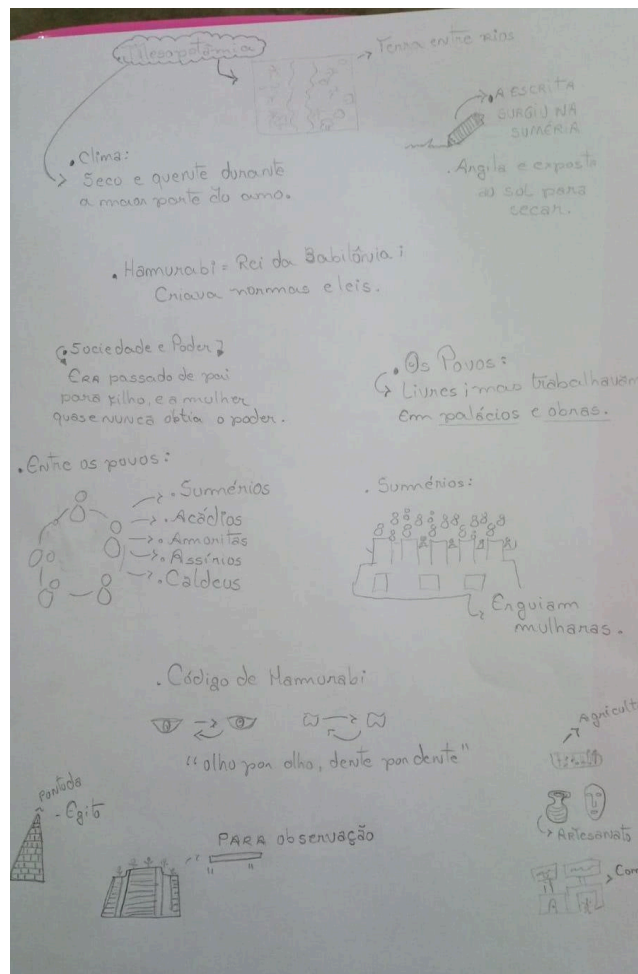 Mesopotâmia
Terra entre rios
. A ESCRITA
SURGIU NA
SUMÉRIA
. Argila e exposta
ao sol para
secar.
. Clima:
Seco e quente durante
a maior parte do ano.
. Hamurabi = Rei da Babilônia;
Criava normas e leis.
. Sociedade e Poder
Era passado de pai
para filho, e a mulher
quase nunca obtia o poder.
. Os Povos:
Livres; mas trabalhavam
Em palácios e obras.
. Entre os povos:
. Sumérios
. Acádios
. Amoritas
. Assírios
. Caldeus
. Sumérios:
Erguiam
mulharas.
. Código de Hamurabi
"olho por olho, dente por dente"
Pontuda
- Egito
PARA observação
Agricult
Artesanato
Com